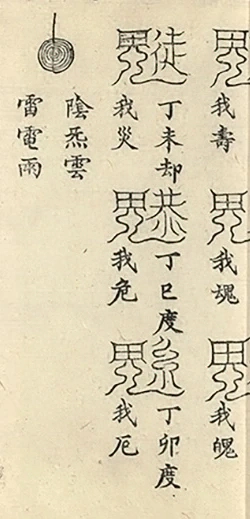 我壽
我魂
我魄
丁未却
我災
丁巳度
我危
丁卯度
我厄
隂炁雲
雷電雨